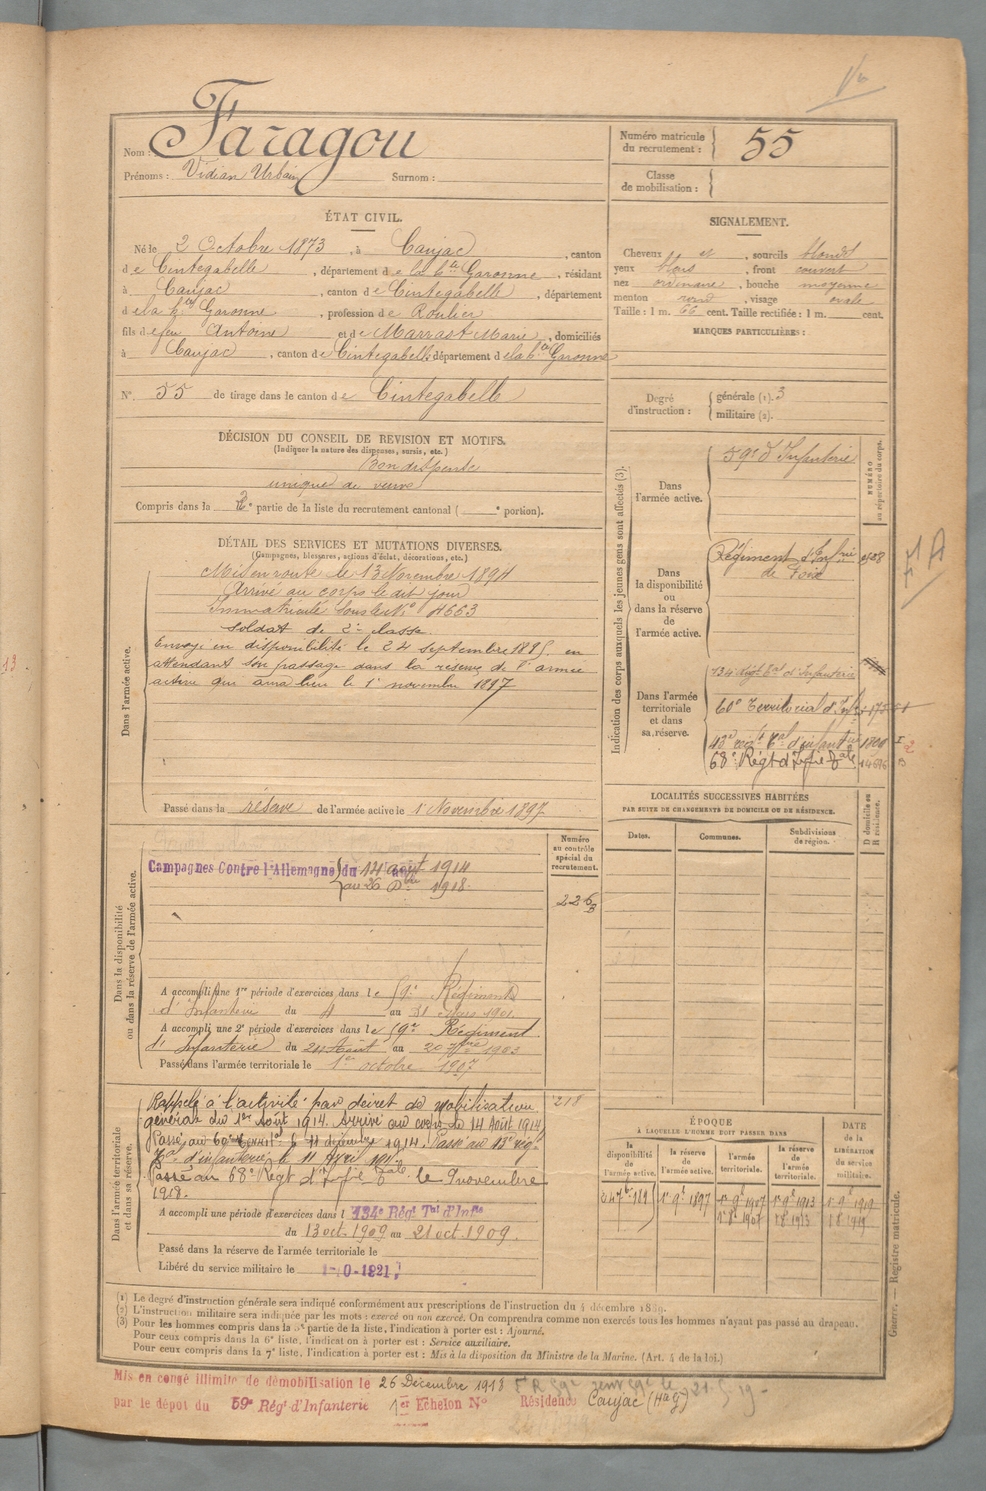 Nom : Faragou
Prénoms : Vidian Urbain Surnom :
Numéro matricule du recrutement : 55
Classe de mobilisation :
ÉTAT CIVIL.
Né le 2 Octobre 1873, à Caujac, canton
de Cintegabelle, département de la hte Garonne, résidant
à Caujac, canton de Cintegabelle, département
de la hte Garonne, profession de Roulier
fils de feu Antoine et de Marrast Marie, domiciliés
à Caujac, canton de Cintegabelle département de la hte Garonne
N° 55 de tirage dans le canton de Cintegabelle
SIGNALEMENT.
Cheveux et, sourcils blonds
yeux, front couvert
nez ordinaire, bouche moyenne
menton rond, visage ovale
Taille : 1 m. 66 cent. Taille rectifiée : 1 m. cent.
MARQUES PARTICULIÈRES :
Degré d'instruction : générale (1). 3
militaire (2).
DÉCISION DU CONSEIL DE REVISION ET MOTIFS.
(Indiquer la nature des dispenses, sursis, etc.)
Bon dispensé
unique de veuve
Compris dans la 2e partie de la liste du recrutement cantonal ( e portion).
DÉTAIL DES SERVICES ET MUTATIONS DIVERSES.
(Campagnes, blessures, actions d'éclat, décorations, etc.)
Dans l'armée active.
Mis en route le 13 Novembre 1894
Arrivé au corps le dit jour
Immatriculé sous le N° 4663
soldat de 2e classe.
Envoyé en disponibilité le 24 septembre 1895. en
attendant son passage dans la réserve de l'armée
active qui aura lieu le 1er novembre 1897
Passé dans la réserve de l'armée active le 1er Novembre 1897
Indication des corps auxquels les jeunes gens sont affectés (3).
NUMÉRO au répertoire du corps.
Dans l'armée active.
59e d'Infanterie
Dans la disponibilité ou dans la réserve de l'armée active.
Régiment d'Infrie
de Foix
Dans l'armée territoriale et dans sa réserve.
134 Régt tal d'Infanterie
60e Territorial d'Infie
43e régt tal d'infanterie 1809
68e Régt d'Infie tale
LOCALITÉS SUCCESSIVES HABITÉES
PAR SUITE DE CHANGEMENTS DE DOMICILE OU DE RÉSIDENCE.
Dates. Communes. Subdivisions de région.
D domicile ou R résidence.
Dans la disponibilité ou dans la réserve de l'armée active.
Numéro au contrôle spécial du recrutement.
Campagnes Contre l'Allemagne du 14 août 1914
au 26 Dbre 1918.
A accompli une 1re période d'exercices dans le 59e Régiment
d'Infanterie du 4 au 31 mars 1901
A accompli une 2e période d'exercices dans le 59e Régiment
d'Infanterie du 24 Août au 20 7bre 1903
Passé dans l'armée territoriale le 1er octobre 1907
Dans l'armée territoriale et dans sa réserve.
218
Rappelé à l'activité par décret de mobilisation
générale du 1er Août 1914. Arrivé au corps le 14 Août 1914
Passé au 60e territal le 11 décembre 1914. Passé au 43e régt
tal d'infanterie le 11 Avril
Passé au 68e Régt d'Infie tale le 9 novembre
1918.
A accompli une période d'exercices dans l 134e Régt Tal d'Infie
du 13 oct 1909 au 21 oct 1909.
Passé dans la réserve de l'armée territoriale le
Libéré du service militaire le
ÉPOQUE
À LAQUELLE L'HOMME DOIT PASSER DANS
la disponibilité de l'armée active. la réserve de l'armée active. l'armée territoriale. la réserve de l'armée territoriale.
DATE de la LIBÉRATION du service militaire.
1er 9bre 1897 1er 9bre 1907 1er 9bre 1913 1er 9bre 1919
(1) Le degré d'instruction générale sera indiqué conformément aux prescriptions de l'instruction du 4 décembre 1889.
(2) L'instruction militaire sera indiquée par les mots : exercé ou non exercé. On comprendra comme non exercés tous les hommes n'ayant pas passé au drapeau.
(3) Pour les hommes compris dans la 5e partie de la liste, l'indication à porter est : Ajourné.
Pour ceux compris dans la 6e liste, l'indication à porter est : Service auxiliaire.
Pour ceux compris dans la 7e liste, l'indication à porter est : Mis à la disposition du Ministre de la Marine. (Art. 4 de la loi.)
Guerre. — Registre matricule.
Mis en congé illimité de démobilisation le 26 Décembre 1918
par le dépôt du 59e Régt d'Infanterie 1er Echelon N° Résidence Caujac (Hte G)